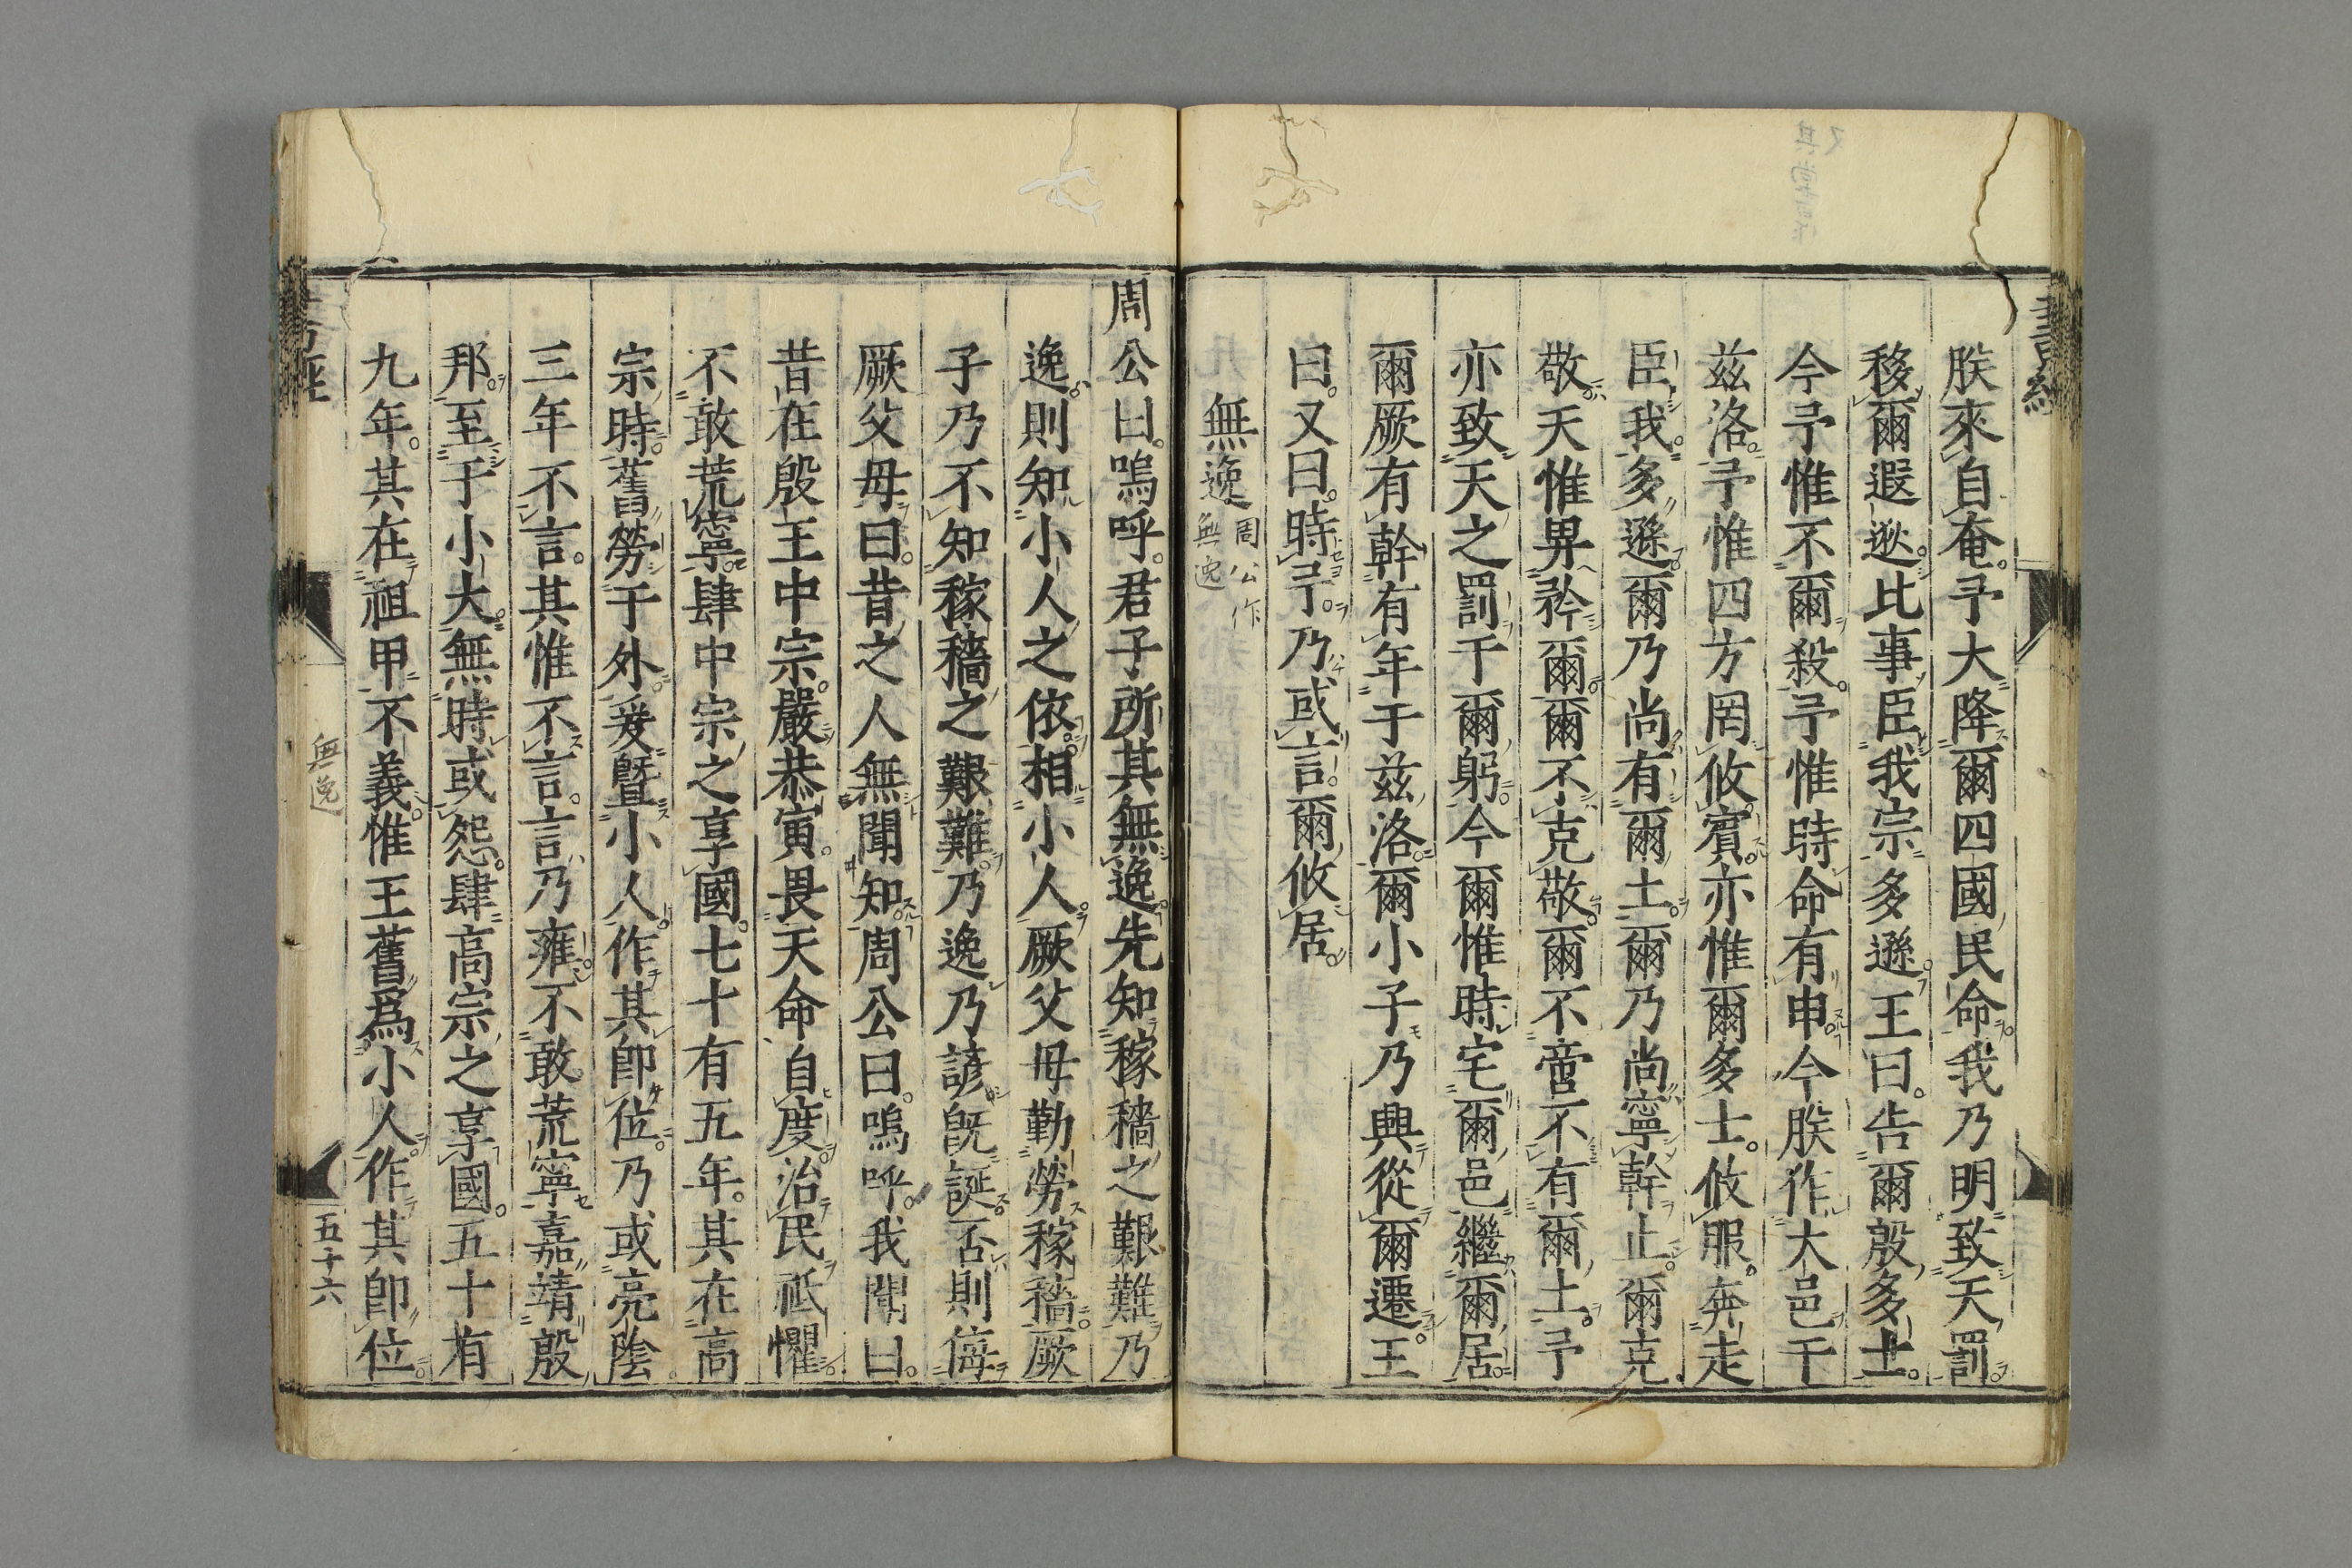 朕來自奄。予大降爾四國民命。我乃明致天罰
移爾遐逖。比事臣我宗多遜。王曰。告爾殷多士。
今予惟不爾殺。予惟時命有申。今朕作大邑于
茲洛。予惟四方罔攸賓。亦惟爾多士。攸服。奔走
臣我。多遜爾乃尚有爾土。爾乃尚寧幹止。爾克
敬。天惟畀矜爾。爾不克敬。爾不啻不有爾土。予
亦致天之罰于爾躬。今爾惟時宅爾邑。繼爾居。
爾厥有幹有年于茲洛。爾小子乃興從爾遷。王
曰。又曰。時予。乃或言。爾攸居。
無逸 周公作無逸
周公曰。嗚呼。君子所其無逸。先知稼穡之艱難乃
逸。則知小人之依。相小人。厥父母勤勞稼穡。厥
子乃不知稼穡之艱難。乃逸乃諺。旣誕。否則侮
厥父母曰。昔之人無聞知。周公曰。嗚呼。我聞曰。
昔在殷王中宗。嚴恭寅。畏天命自度。治民祗懼。
不敢荒寧。肆中宗之享國。七十有五年。其在高
宗時。舊勞于外。爰曁小人。作其卽位。乃或亮陰。
三年不言。其惟不言。言乃雍。不敢荒寧嘉靖殷
邦。至于小大。無時或怨。肆高宗之享國。五十有
九年。其在祖甲。不義。惟王舊爲小人。作其卽位。
無逸
五十六